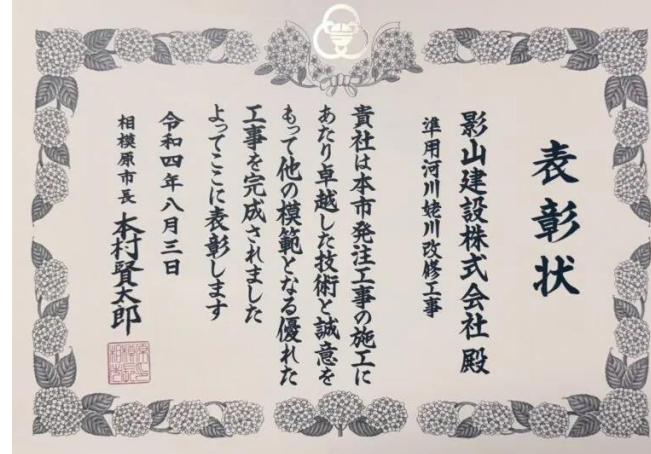 表彰状
影山建設株式会社 殿
準用河川姥川改修工事
貴社は本市発注工事の施工に
あたり卓越した技術と誠意を
もって他の模範となる優れた
工事を完成されました
よってここに表彰します
令和四年八月三日
相模原市長 本村賢太郎